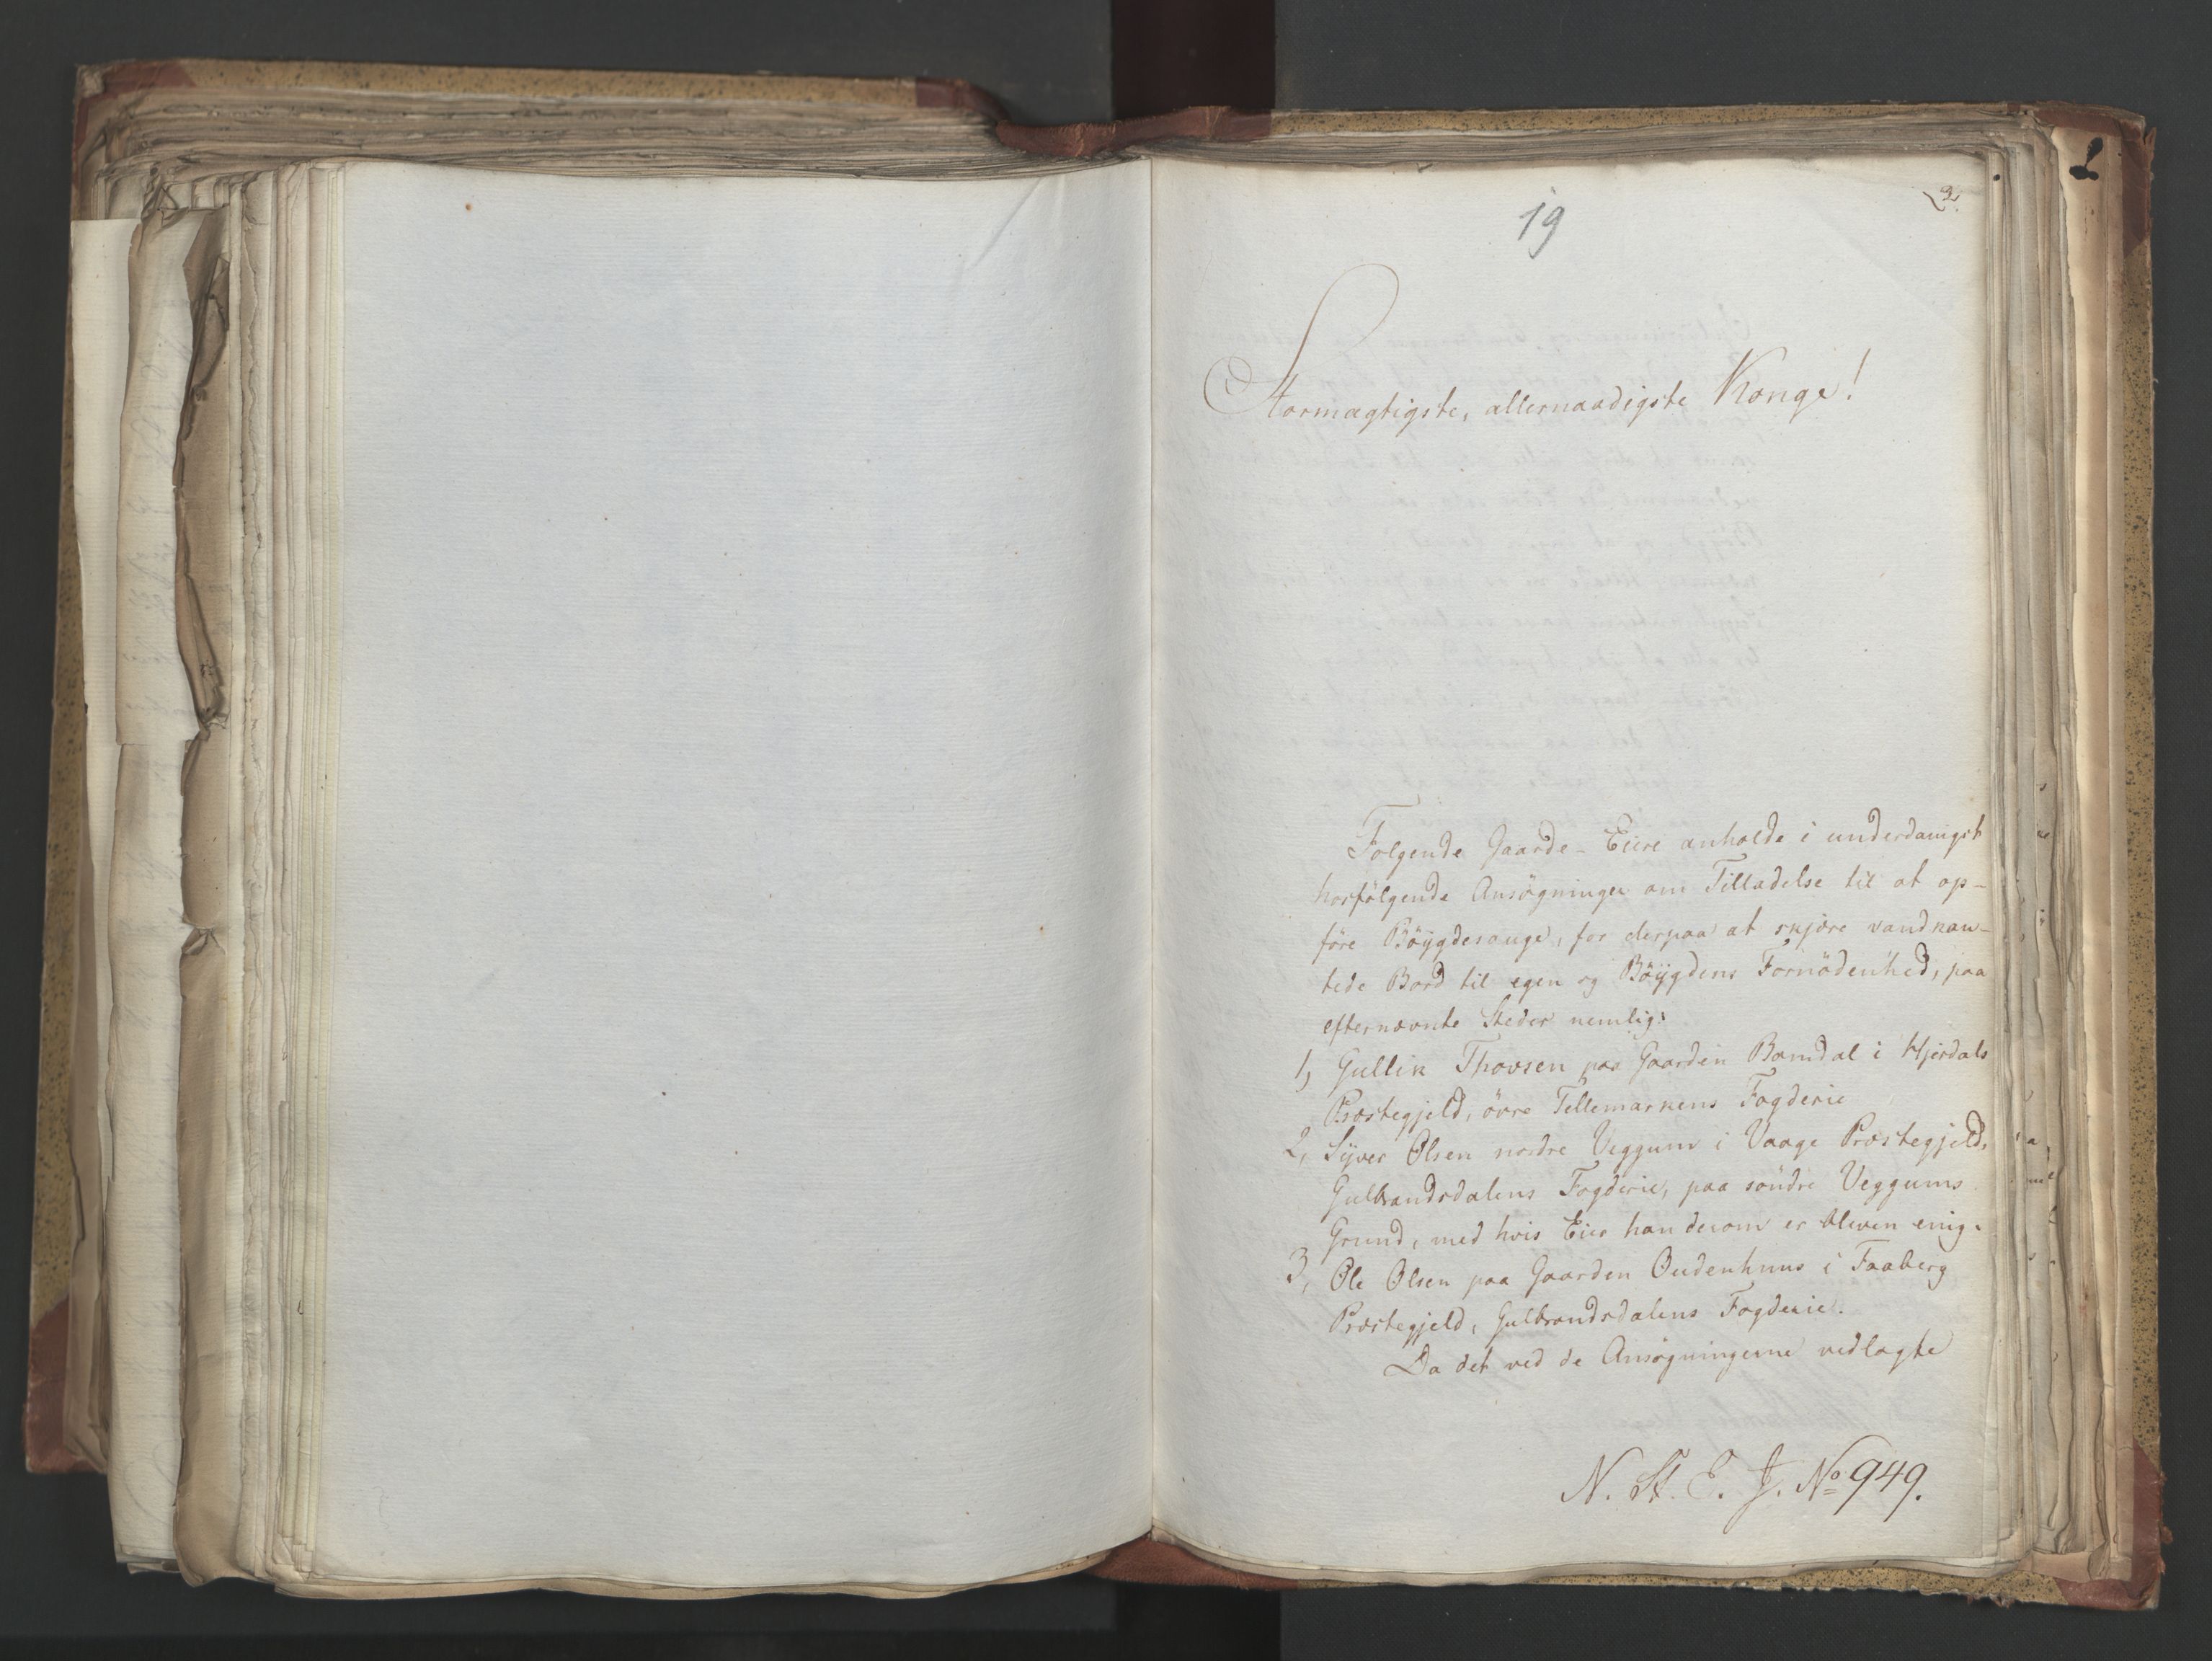 19
2.
Stormægtigste, allernaadigste Konge!
Følgende Gaarde-Eiere anholde i underdanigst
hosfølgende Ansøgninger om Tilladelse til at op-
føre Böÿgdesauge, for derpaa at skjære vandkan-
tede Bord til egen og Böÿgdens Fornödenhed, paa
efternævnte Steder nemlig:
1, Gullik Thovsen paa Gaarden Bamdal i Hjerdals
Præstegjeld, övre Tellemarkens Fogderie
2, Syver Olsen nordre Veggum i Vaage Præstegjeld,
Gulbrandsdalens Fogderie, paa söndre Veggums
Grund, med hvis Eier han derom er bleven enig.
3, Ole Olsen paa Gaarden Oudenhuus i Faaberg
Præstegjeld, Gulbrandsdalens Fogderie.
Da det ved de Ansøgningerne vedlagte
N. St. E. J. No 949.